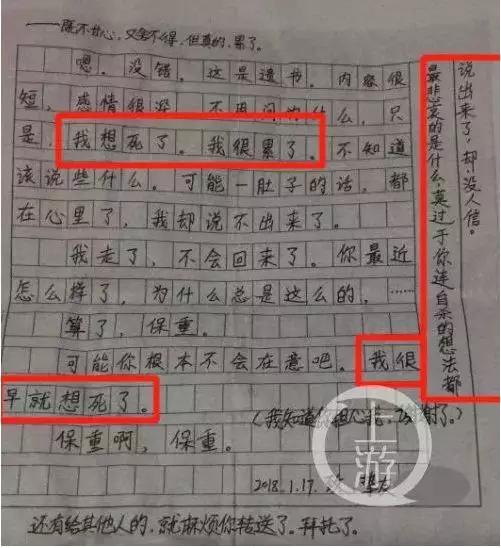 ——既不甘心，又舍不得，但真的，累了。
嗯。没错。这是遗书。内容很
短，感情很深。不要问为什么，只
是，我想死了。我很累了。不知道
该说些什么。可能一肚子的话，都
在心里了，我却说不出来了。
我走了，不会回来了。你最近
怎么样了，为什么总是这么的，……
算了，保重。
可能你根本不会在意吧。我很
早就想死了。
(我知道你担心我，谢谢了。)
保重啊，保重。
2018.1.17.
还有给其他人的，就麻烦你转送了。拜托了。
最悲哀的是什么，莫过于你连自杀的想法都
说出来了，却没人信。
上游